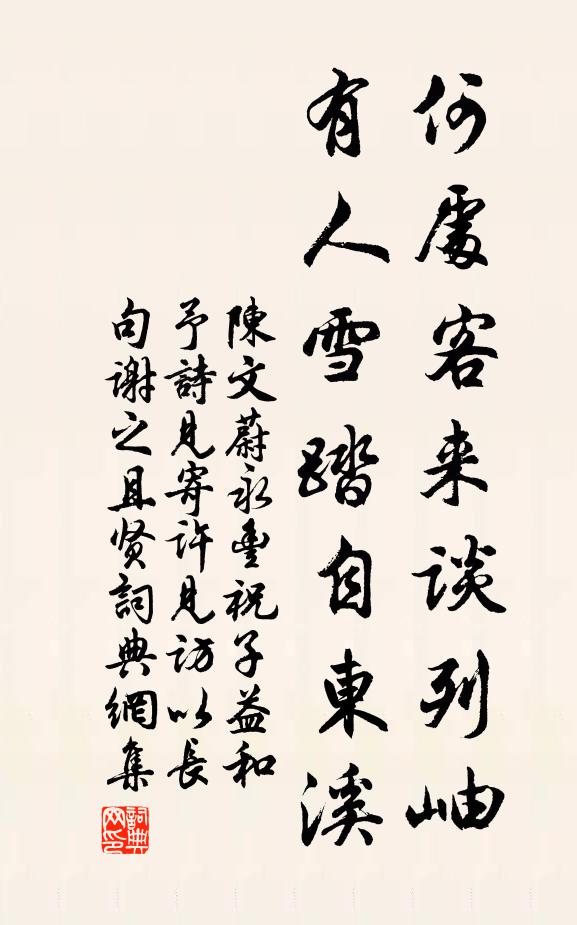 何處客来談列岫
有人雪踏自東溪
陳文蔚永豐祝子益和
予詩見寄許見訪以長
句謝之且贤詞典網集
詞典网印